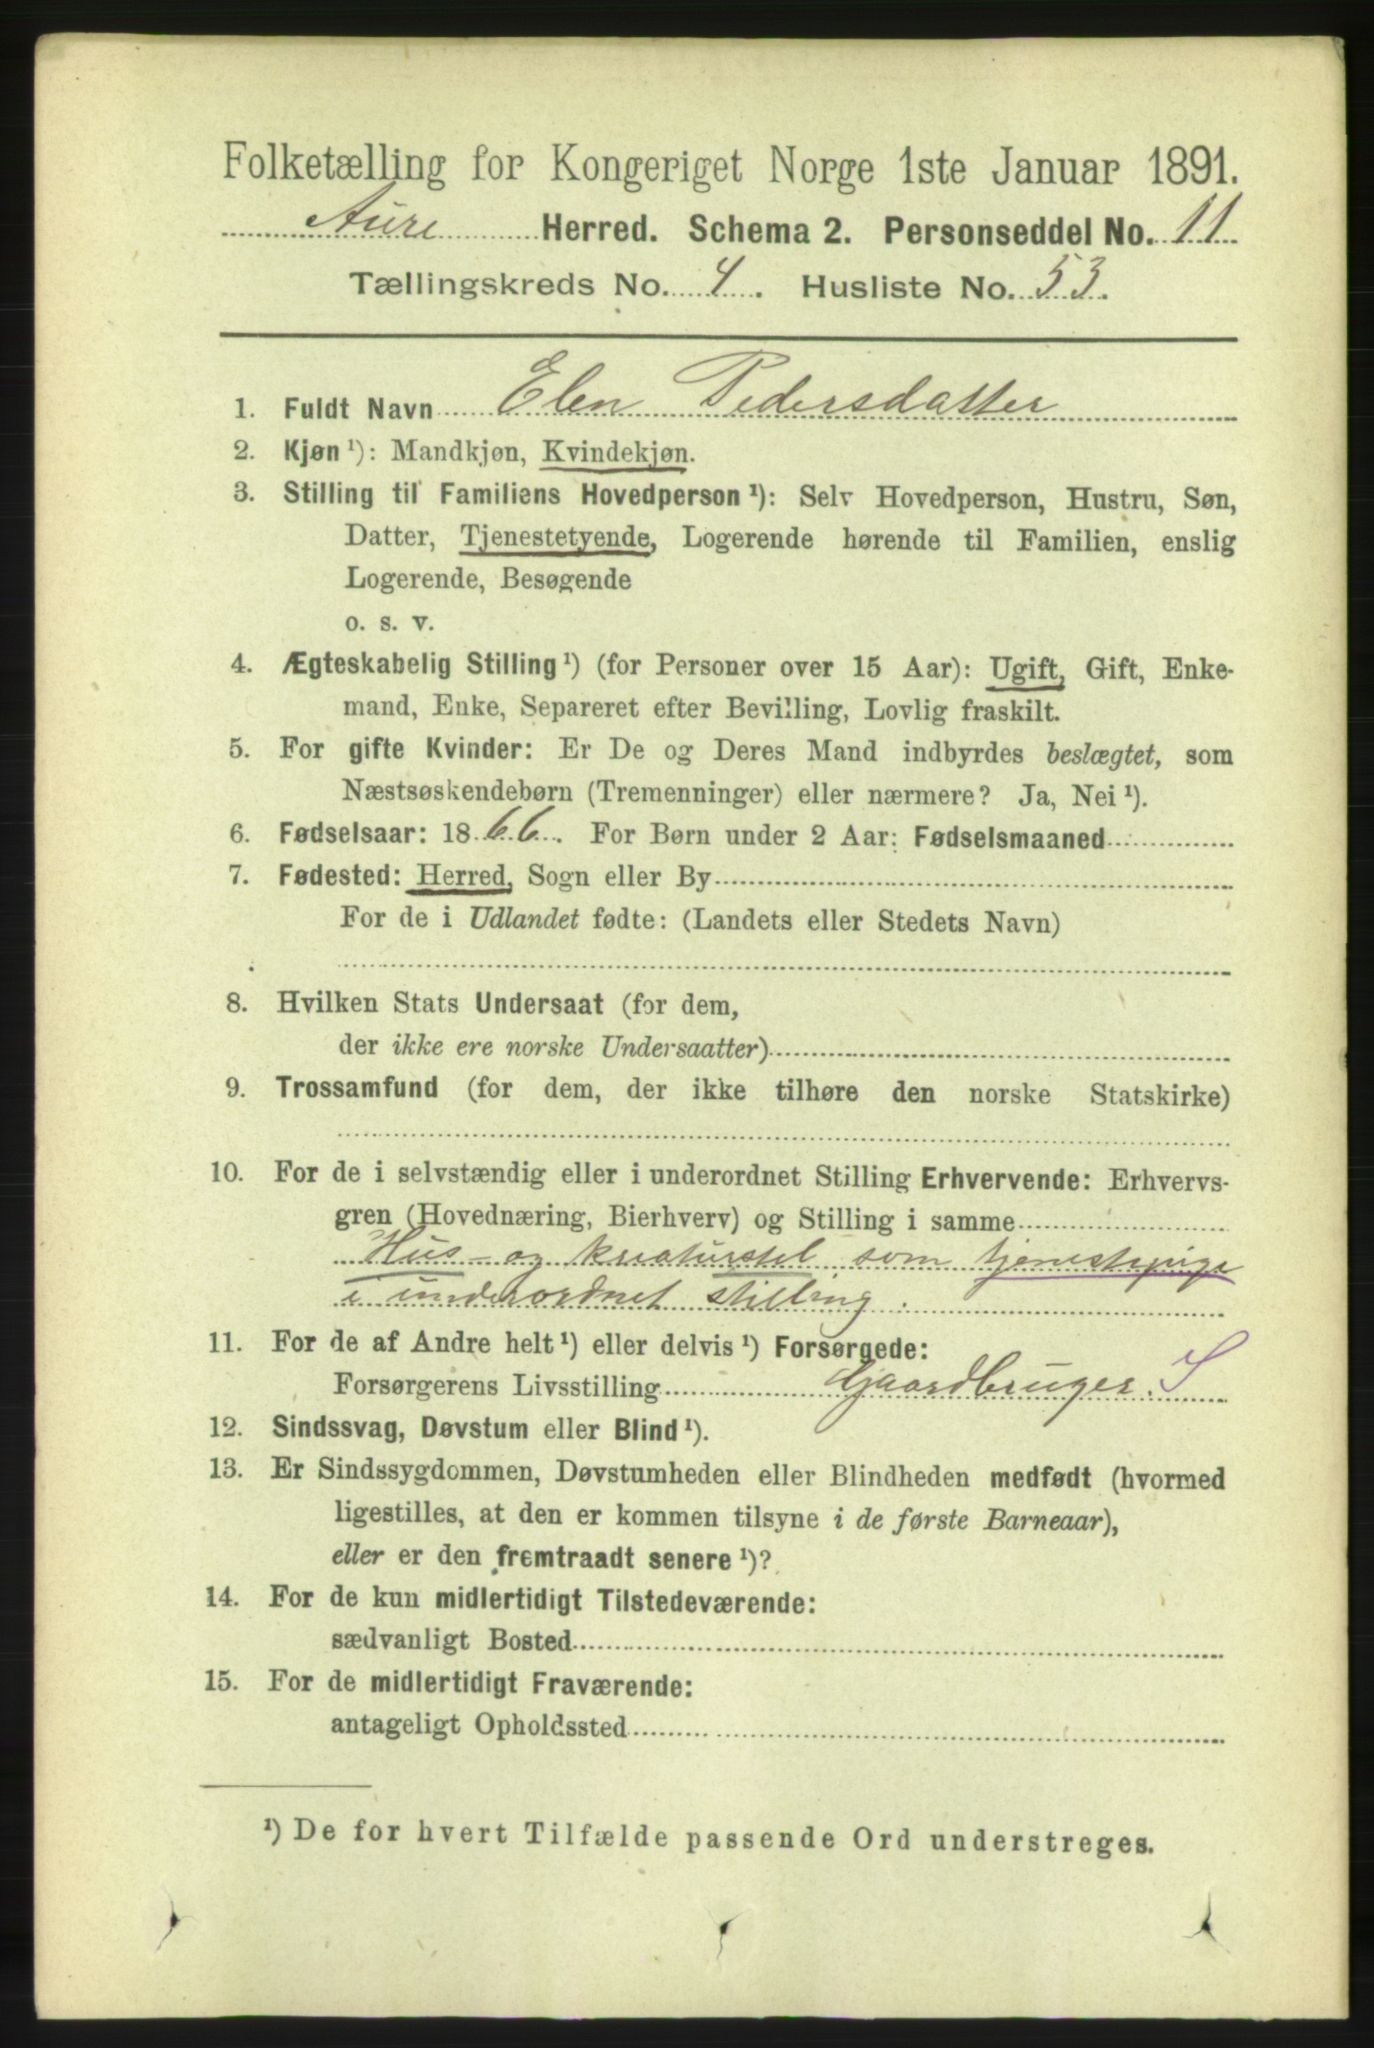 Folketælling for Kongeriget Norge 1ste Januar 1891.
Aure Herred. Schema 2. Personseddel No. 11
Tællingskreds No. 4. Husliste No. 53.
1. Fuldt Navn Elen Pedersdatter
2. Kjøn ¹): Mandkjøn, Kvindekjøn.
3. Stilling til Familiens Hovedperson ¹): Selv Hovedperson, Hustru, Søn,
Datter, Tjenestetyende, Logerende hørende til Familien, enslig
Logerende, Besøgende
o. s. v.
4. Ægteskabelig Stilling ¹) (for Personer over 15 Aar): Ugift, Gift, Enke-
mand, Enke, Separeret efter Bevilling, Lovlig fraskilt.
5. For gifte Kvinder: Er De og Deres Mand indbyrdes beslægtet, som
Næstsøskendebørn (Tremenninger) eller nærmere? Ja, Nei ¹).
6. Fødselsaar: 1866. For Børn under 2 Aar: Fødselsmaaned
7. Fødested: Herred, Sogn eller By
For de i Udlandet fødte: (Landets eller Stedets Navn)
8. Hvilken Stats Undersaat (for dem,
der ikke ere norske Undersaatter)
9. Trossamfund (for dem, der ikke tilhøre den norske Statskirke)
10. For de i selvstændig eller i underordnet Stilling Erhvervende: Erhvervs-
gren (Hovednæring, Bierhverv) og Stilling i samme
Hus- og kreaturstel som tjenestepige
i underordnet stilling.
11. For de af Andre helt ¹) eller delvis ¹) Forsørgede:
Forsørgerens Livsstilling Gaardbruger. S
12. Sindssvag, Døvstum eller Blind ¹).
13. Er Sindssygdommen, Døvstumheden eller Blindheden medfødt (hvormed
ligestilles, at den er kommen tilsyne i de første Barneaar),
eller er den fremtraadt senere ¹)?
14. For de kun midlertidigt Tilstedeværende:
sædvanligt Bosted
15. For de midlertidigt Fraværende:
antageligt Opholdssted
¹) De for hvert Tilfælde passende Ord understreges.